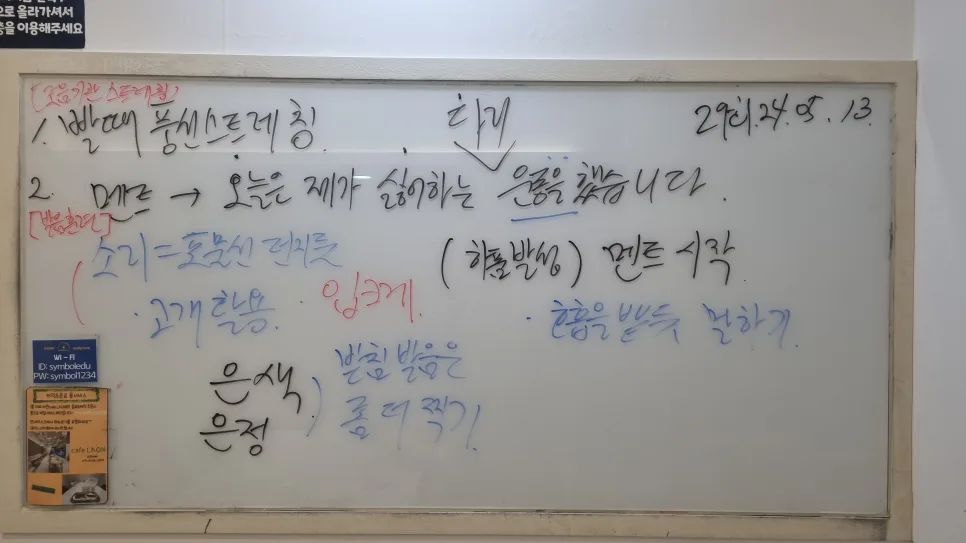 으로 올라가셔서
층을 이용해주세요
[조음기관 스트레칭]
1. 발떼 풍선스트레칭
타겟
29회. 24. 05. 13.
2. 멘트 → 오늘은 제가 싫어하는 운동을 했습니다.
[발음훈련]
소리=포물선 던지듯
(하품발성) 멘트 시작
· 고개 활용 · 입크게
· 호흡을 뱉듯 말하기
은색
은정
받침 발음은
좀 더 찍기
WI-FI
ID: symboledu
PW: symbol1234
cafe LAON